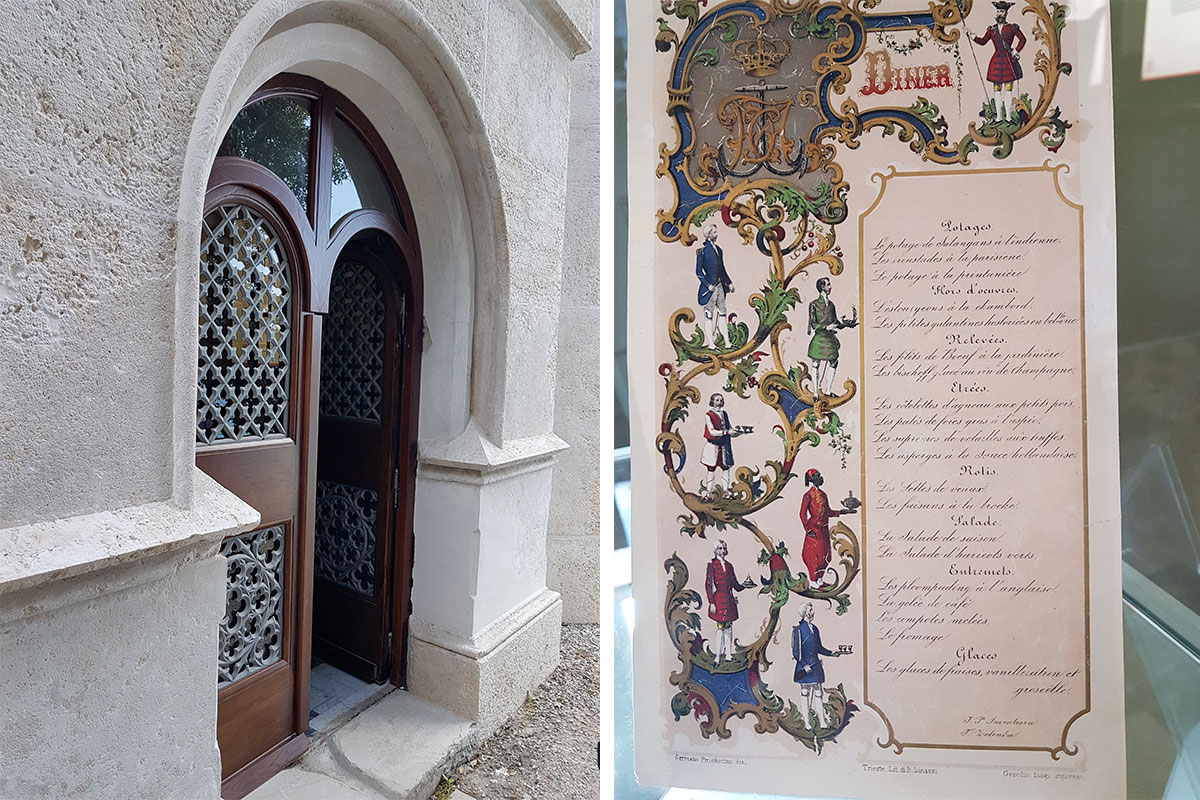 DINER
Potages.
Le potage de Salangans à l'indienne.
Les croustades à la parisiene.
Le potage à la printanière
Hors d'oeuvres.
L'estourgeons à la chambord.
Les ptites galantines historiées en
Relevées.
Les ptits de Boeuf à la jardinière.
Les bischoff glacé au vin de Champagne.
Etrées.
Les côtelettes d'agneau aux petits pois.
Les patés de foies gras à l'aspic.
Les suprèmes de volailles aux truffes.
Les asperges à la Souce hollandaise.
Rotis.
Les Selles de veaux.
Les faisans à la broche.
Salade.
La Salade de saison.
La Salade d'haricots verts.
Entremets.
Les ploompuding à l'anglaise.
La gelée de café
Les compotes melées.
Le fromage.
Glaces
Les glaces de fraises, vanille, citron et
groseille.
Trieste, Lit. di B. Linassi